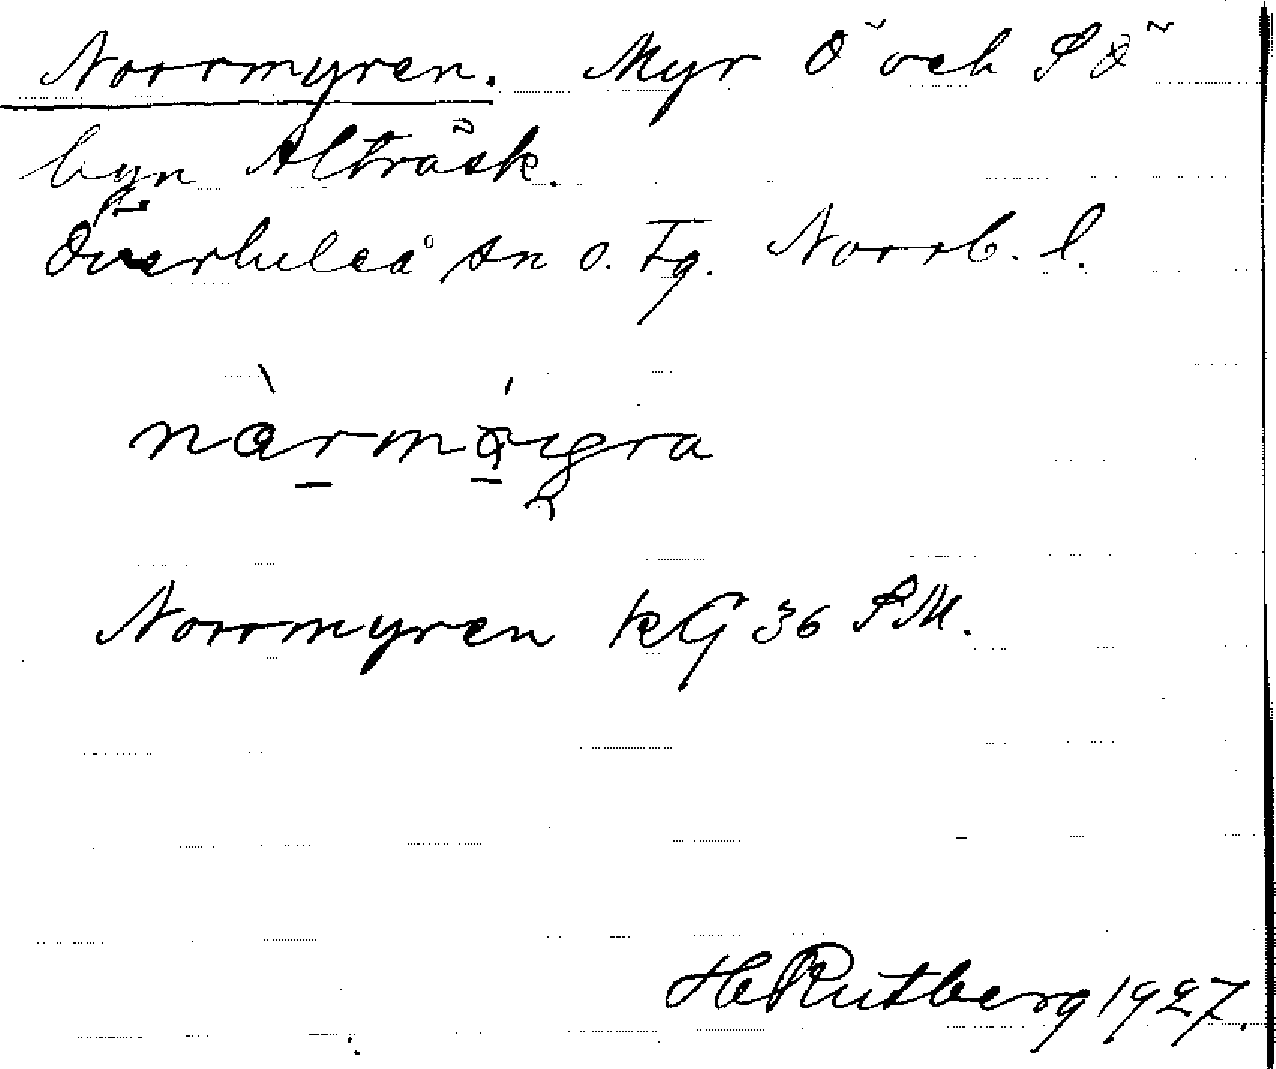 Norrmyren. Myr Ö och SÖ
byn Alträsk.
Överluleå sn o. Tg. Norrb. l.
Norrmyren kG 36 SM.
H Rutberg 1927.